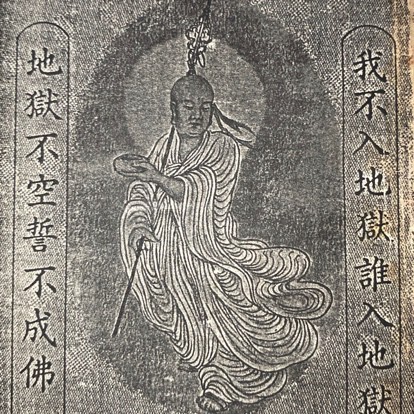 我不入地獄誰入地獄
地獄不空誓不成佛